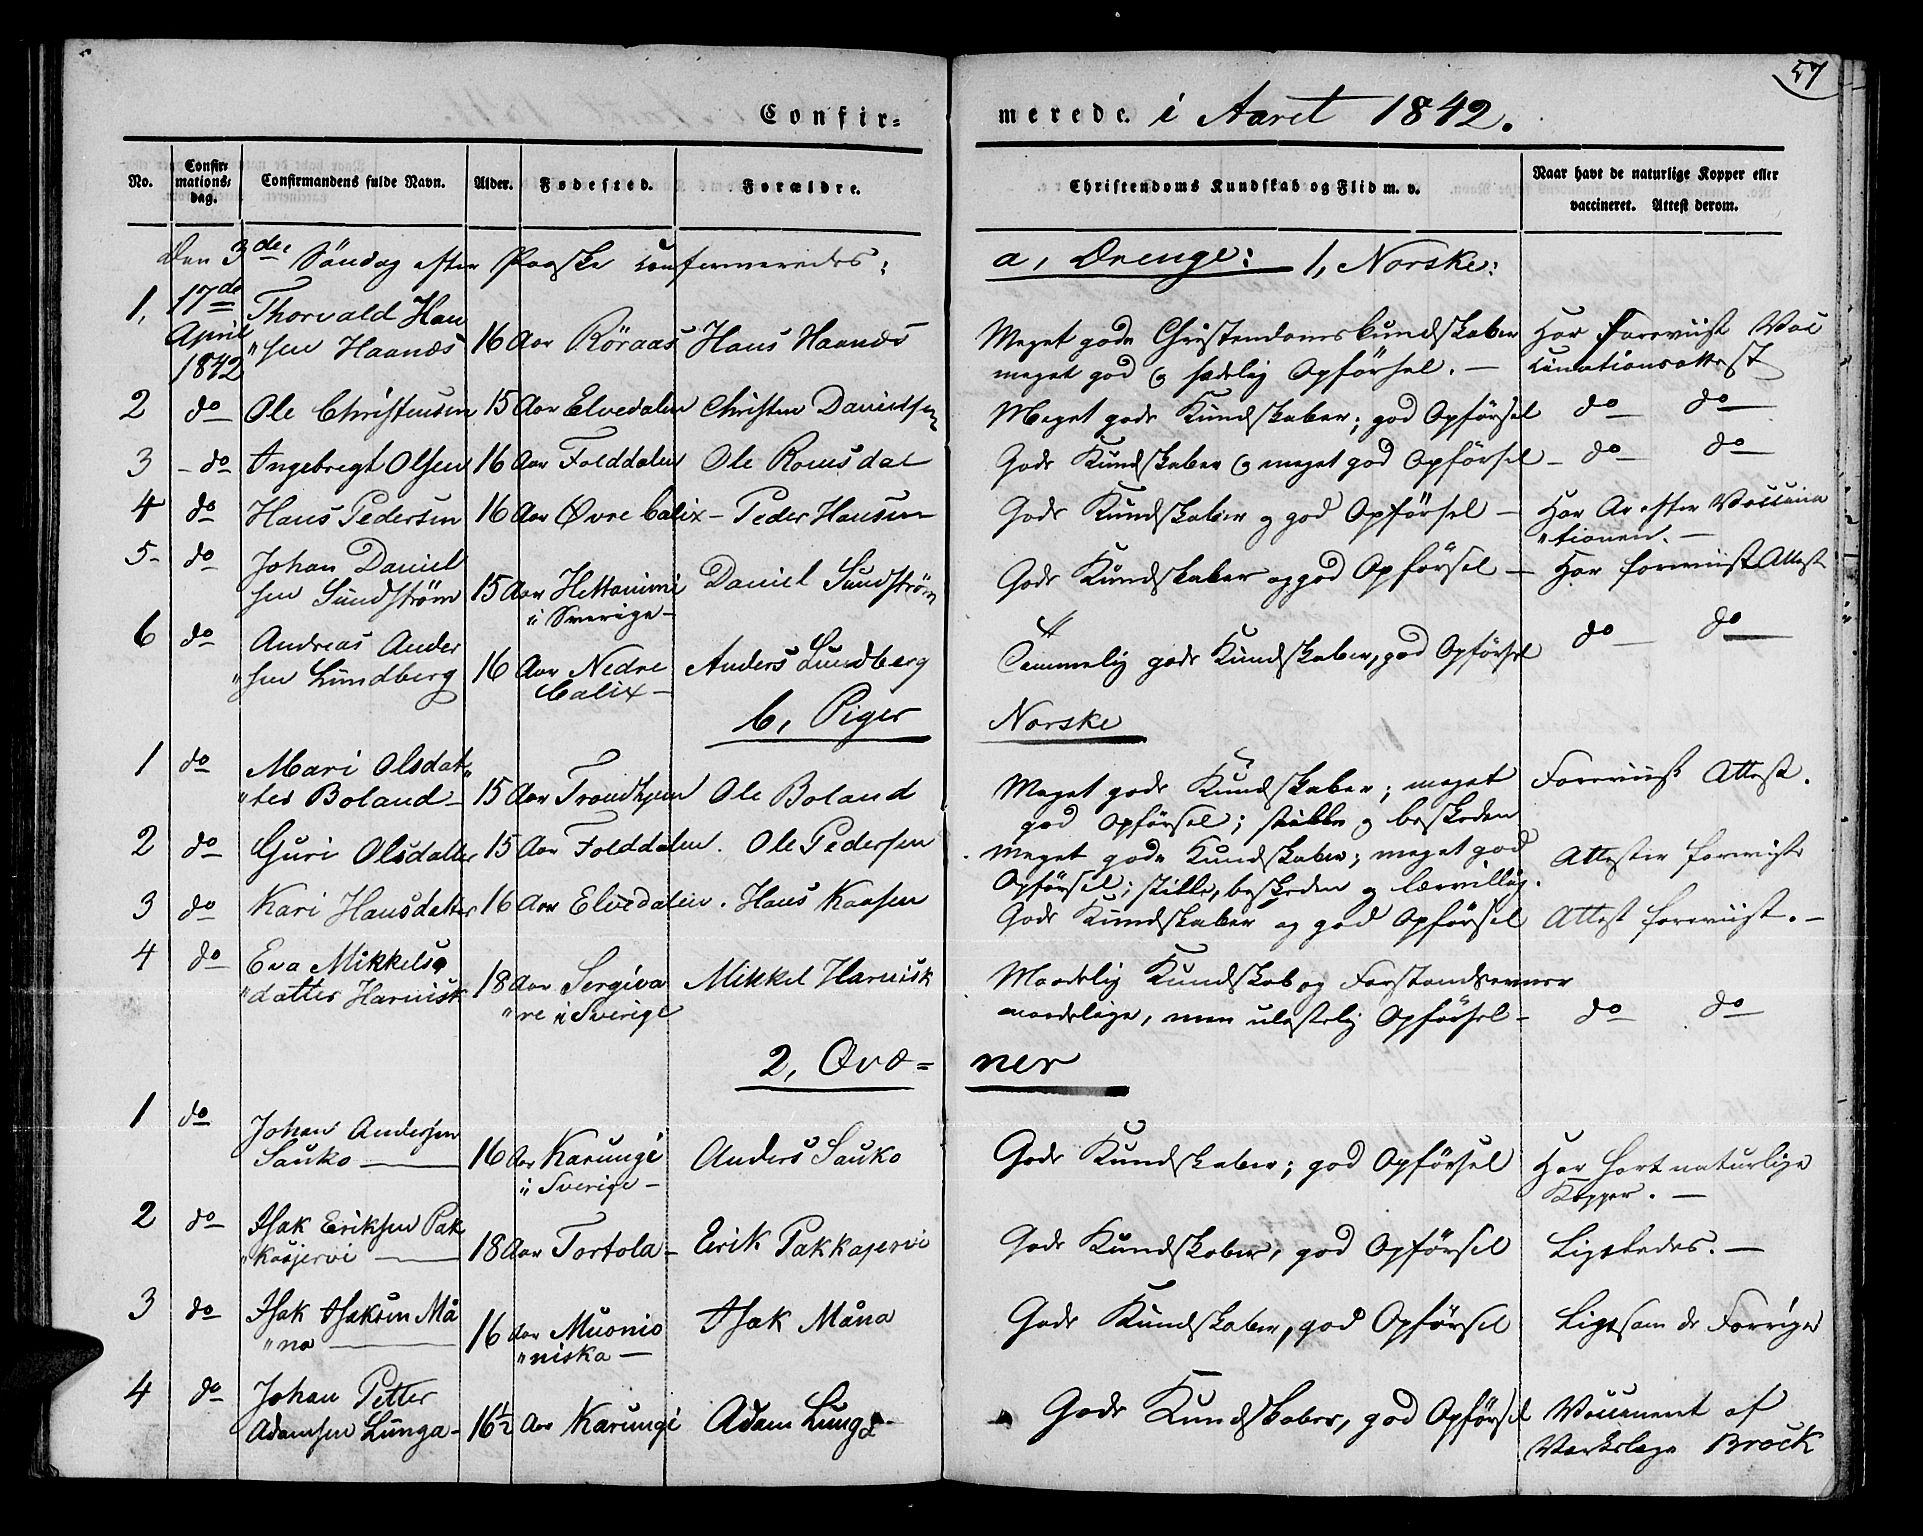 57
Confir= merede. i Aaret 1842.
No. Confir= mations= dag. Confirmandens fulde Navn. Alder. Fødested. Forældre. Christendoms Kundskab og Flid m. v. Naar havt de naturlige Kopper eller vaccineret. Attest derom.
Den 3die Söndag efter Paaske confirmeredes: a, Drenge: 1, Norske:
1, 17de April 1842 Thorvald Han
"sen Haanæs 16 Aar Röraas Hans Haanæs Meget gode Christendomskundskaber Har foreviist Vac
meget god og sædelig Opførsel. — cinationsattest
2 do Ole Christensen 15 Aar Elvedalen Christen Davidsen Meget gode Kundskaber; god Opførsel do do
3 - do Ingebregt Olsen 16 Aar Folddalen Ole Romsdal Gode Kundskaber og meget god Opførsel - do do
4 do Hans Pedersen 16 Aar Øvre Calix - Peder Hansen Gode Kundskaber og god Opførsel - Har Ar efter Vaccina
"tionen. —
5- do Johan Daniel
sen Sundstrøm 15 Aar Hettanimi Daniel Sundstrøm Gode Kundskaber og god Opførsel - Har foreviist Attest
i Sverige -
6 do Andreas Ander
"sen Lundberg 16 Aar Nedre Anders Lundberg Temmelig gode Kundskaber, god Opførsel do do
Calix -
b, Piger Norske
1 do Mari Olsdat"
"ter Boland - 15 Aar Trondhjem Ole Boland Meget gode Kundskaber; meget Foreviist Attest.
god Opførsel; stille og beskeden
2 do Guri Olsdatter 15 Aar Folddalen. Ole Pedersen Meget gode Kundskaber; meget god Attester foreviist
Opførsel; stille, beskeden og lærvillig.
3 do Kari Hansdatter 16 Aar Elvedalen. Hans Kaasen Gode Kundskaber og god Opførsel Attest foreviist. —
4 do Eva Mikkels
"datter Harnisk 18 Aar Sergiva Mikkel Harnisk Maadelig Kundskab og Forstandsevner
"re i Sverige maadelige, men ulastelig Opførsel - do do
2, Qvæ= ner
1 do Johan Andersen
Sauko — 16 Aar Karungi Anders Sauko Gode Kundskaber; god Opførsel Har havt naturlige
i Sverige - Kopper. —
2 do Isak Eriksen Pak
"kasjervi — 18 Aar Tortola - Erik Pakkajervi Gode Kundskaber, god Opførsel Ligeledes. —
3 do Isak Isaksen Må
"na — 16 Aar Muonio Isak Måna Gode Kundskaber, god Opførsel Ligesom de Forrige
"niska —
4 do Johan Petter
Adamsen Lunga - 16½ Aar Karungi Adam Lunga Gode Kundskaber, god Opførsel Vaccineret af
Værkslæge Brock